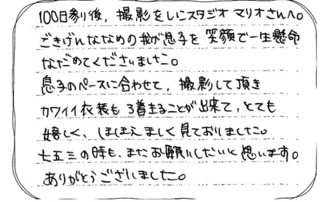 100日参り後，撮影をしにスタジオマリオさんへ。
ごきげんななめの我が息子を笑顔で一生懸命
なだめてくださいました。
息子のペースに合わせて，撮影して頂き
カワイイ衣装も3着きることが出来て，とても
嬉しく、ほほえましく見ておりました。
七五三の時も、またお願いしたいと思います。
ありがとうございました。